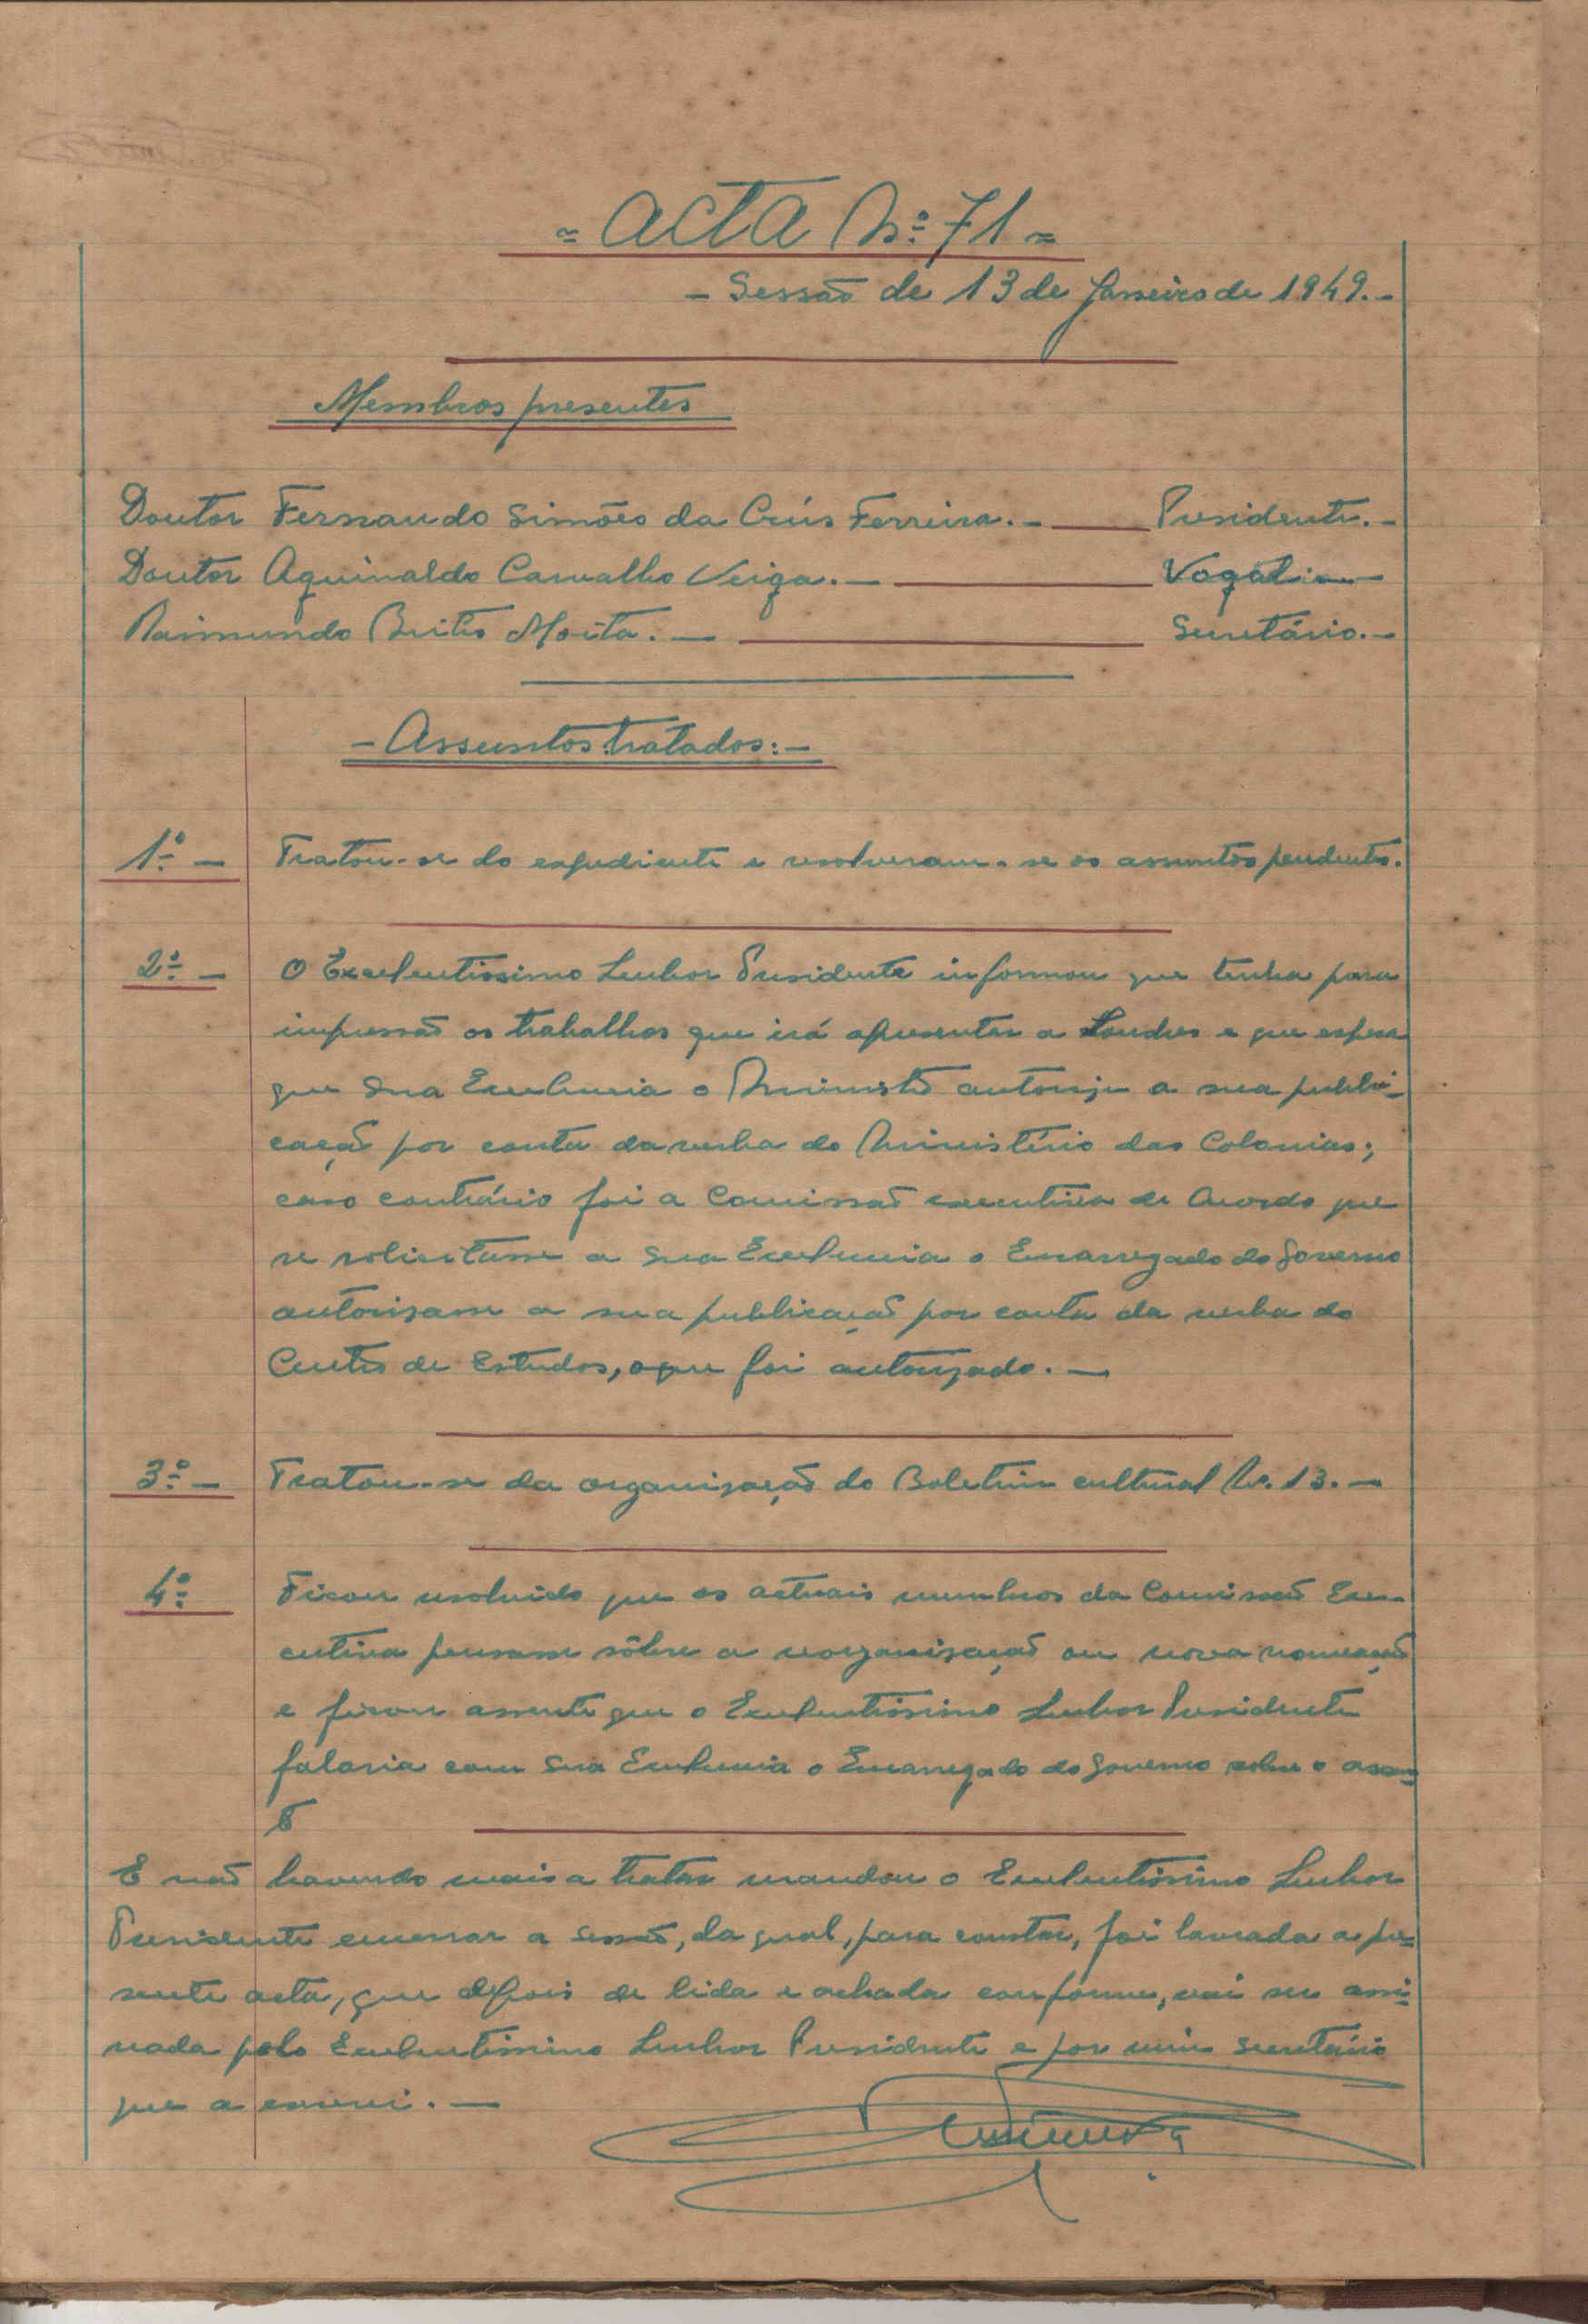 = ACTA Nº 71 =
- Sessão de 13 de Janeiro de 1949.-
Membros presentes
Doutor Fernando Simões da Crús Ferreira.- Presidente.-
Doutor Aquinaldo Carvalho Veiga.- Vogal
Raimundo Brito Moita.- Secretário.-
- Assuntos tratados:-
1º- Tratou-se do expediente e resolveram-se os assuntos pendentes.
2º- O Excelentissimo Senhor Presidente informou que tenha para
impressão os trabalhos que irá apresentar a Londres e que espera
que Sua Excelencia o Ministro autorize a sua publi-
cação por conta da verba do Ministério das Colonias;
caso contrário foi a Comissão executiva de Acordo que
se solicitasse a Sua Excelencia o Encarregado do Governo
autorizasse a sua publicação por conta da verba do
Centro de Estudos, o que foi autorizado.-
3º- Tratou-se da organização do Boletim cultural Nº. 13.-
4º Ficou resolvido que os actuais membros da Comissão Exe-
cutiva pensasse sôbre a reorganização ou nova nomeação
e ficou assente que o Excelentissimo Senhor Presidente
falaria com Sua Excelencia o Encarregado do Governo sobre o assun-
to
E não havendo mais a tratar mandou o Excelentissimo Senhor
Presidente encerrar a sessão, da qual, para constar, foi lavrada a pre=
sente acta, que depois de lida e achada conforme, vai ser assi=
nada pelo Excelentissimo Senhor Presidente e por mim secretário
que a escrevi.-